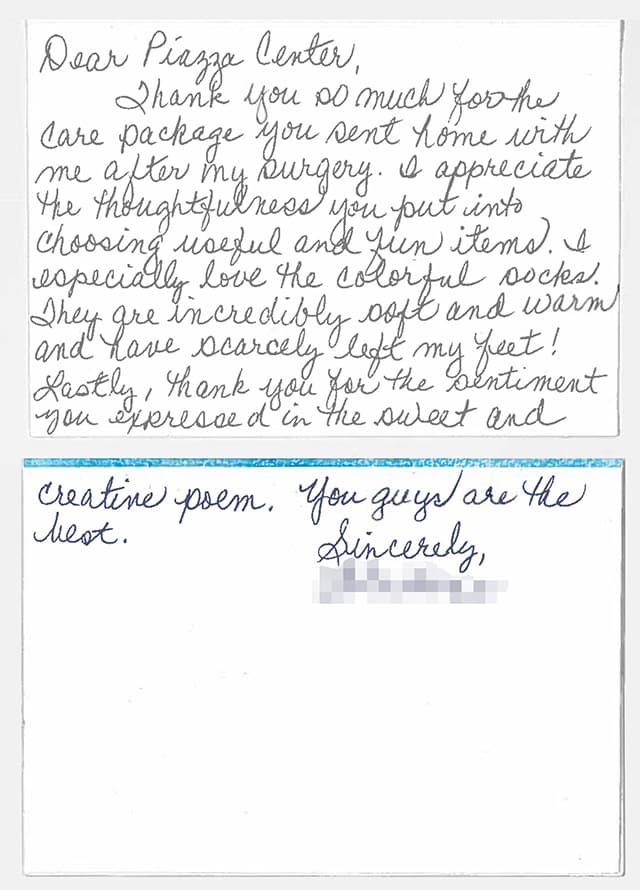 Dear Piazza Center,
Thank you so much for the
care package you sent home with
me after my surgery. I appreciate
the thoughtfulness you put into
choosing useful and fun items. I
especially love the colorful socks.
They are incredibly soft and warm
and have scarcely left my feet!
Lastly, thank you for the sentiment
you expressed in the sweet and
creative poem. You guys are the
best.
Sincerely,